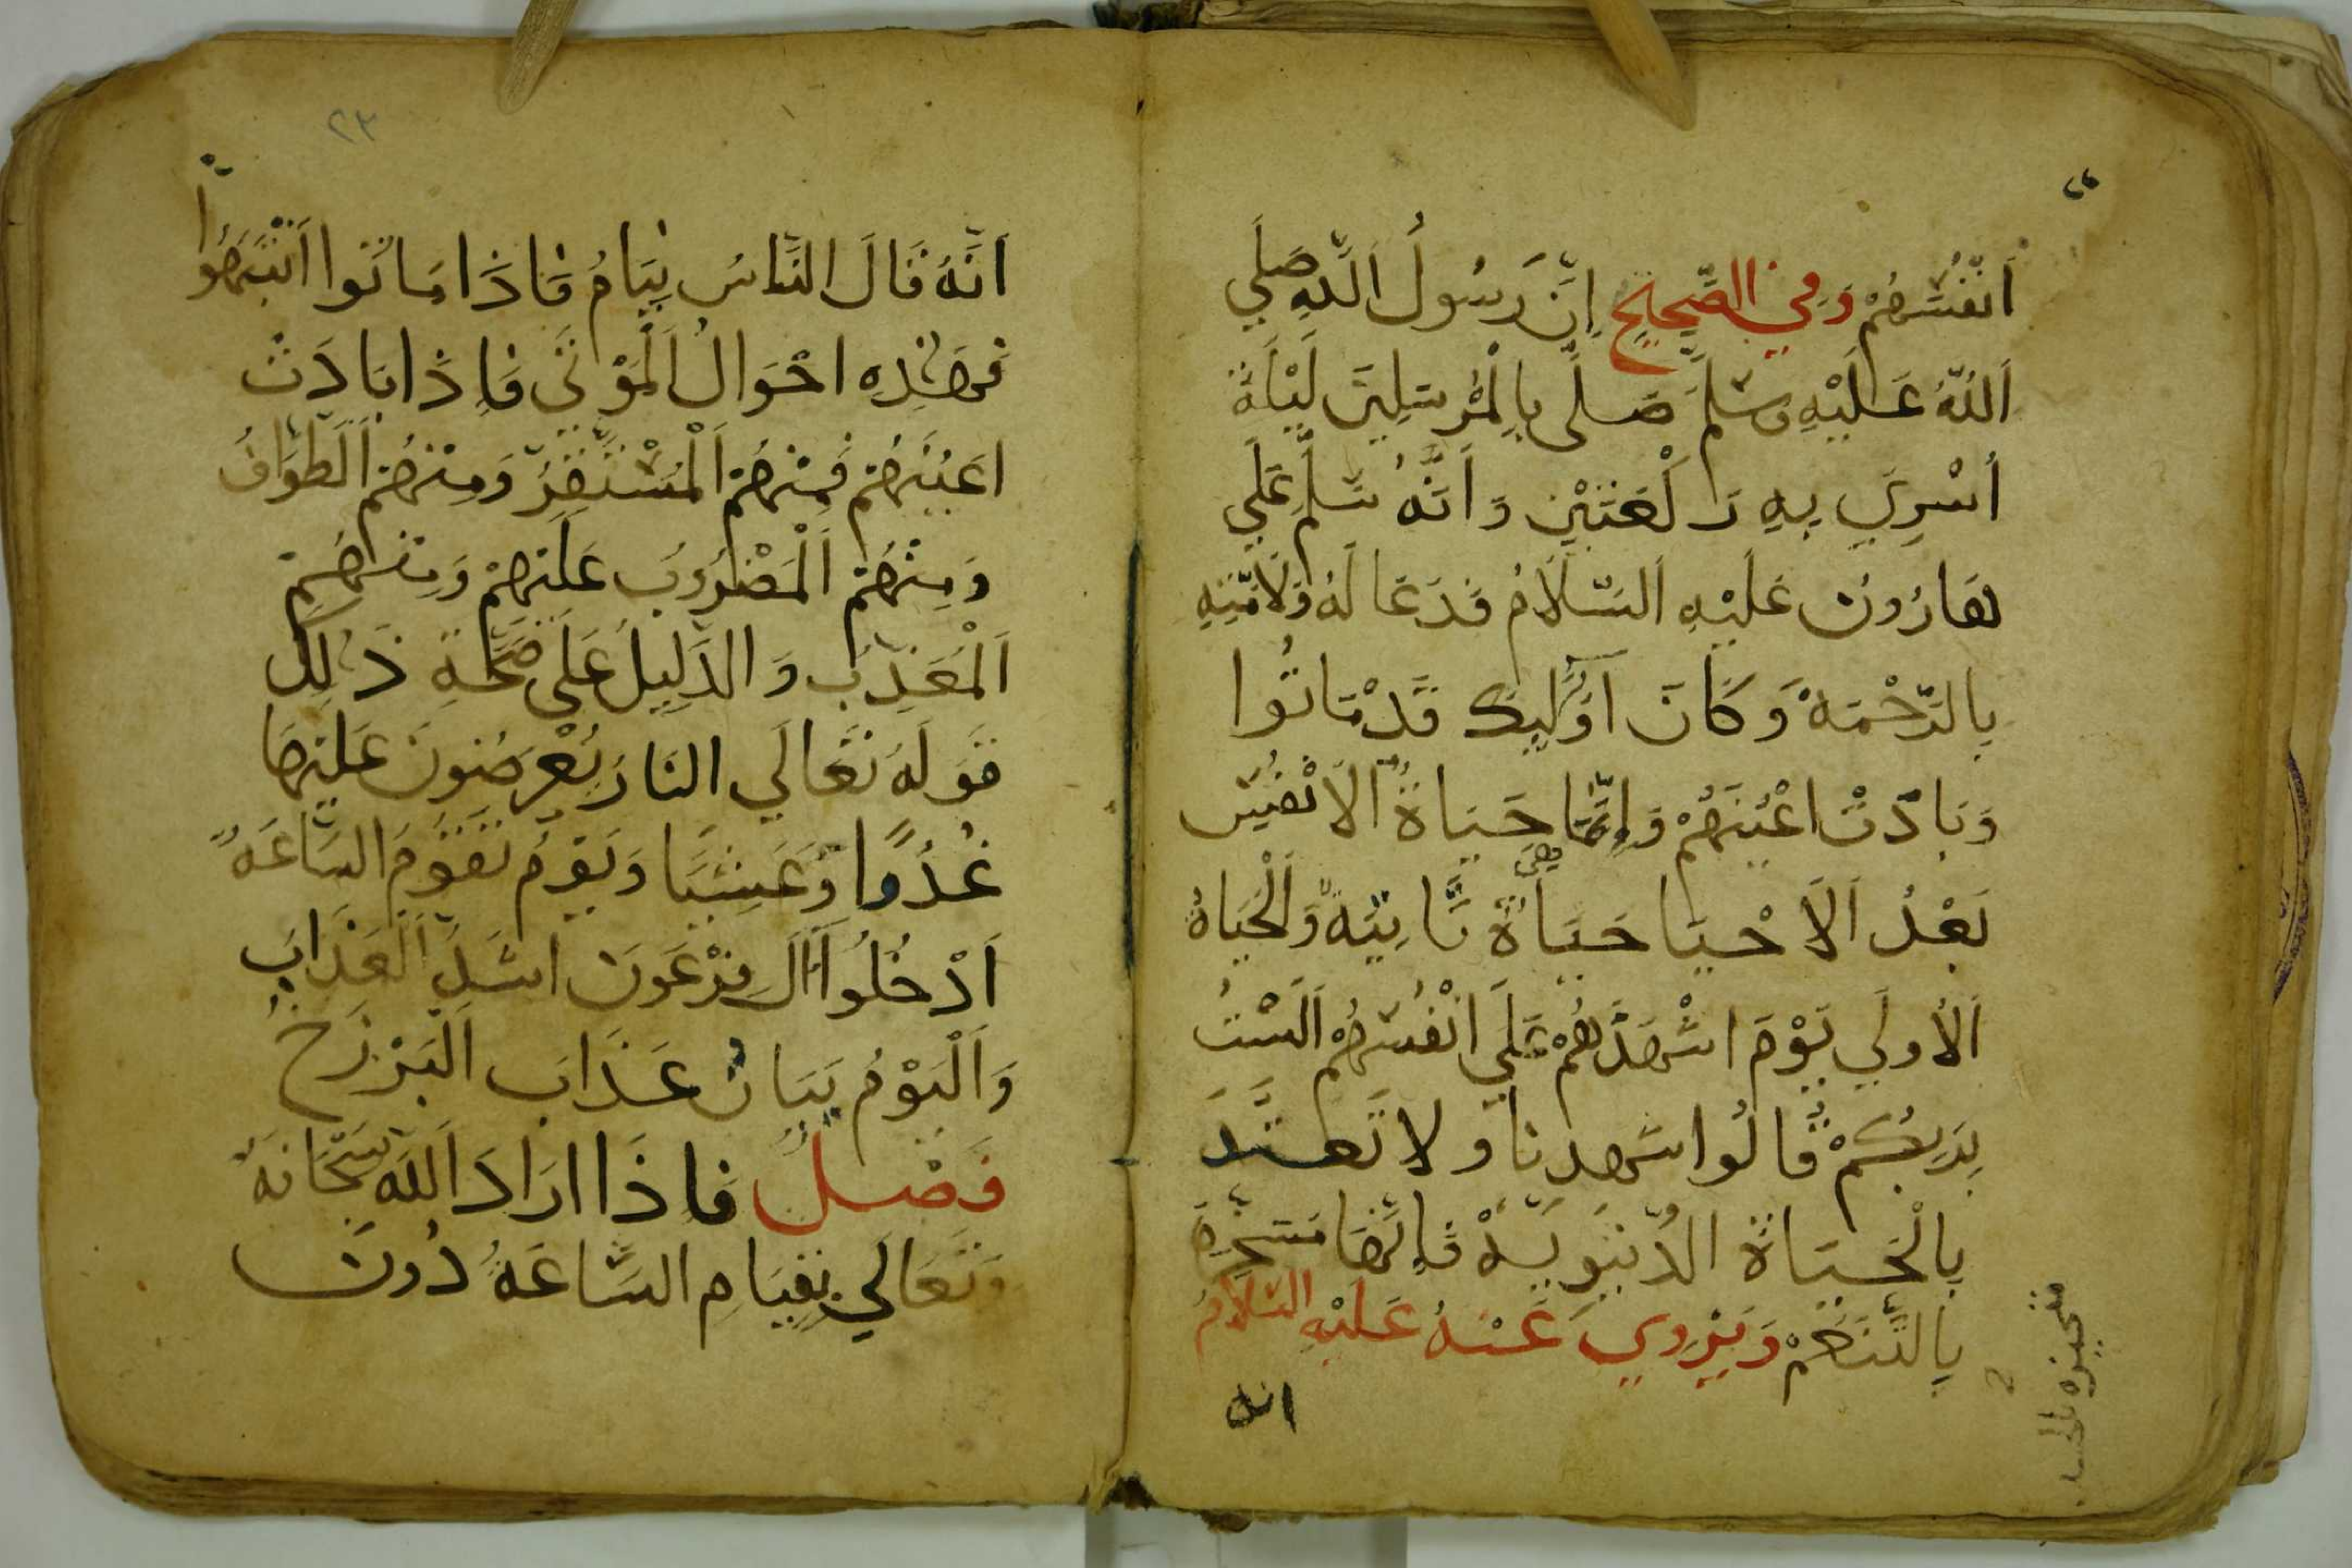 انفسهم وفي الصحيح ان رسول الله صلي
الله عليه وسلم صلى بالمرسلين ليلة
أسري به ركعتين وانه سلم علي
هارون عليه السلام فدعا له ولامته
بالرحمة وكان اوليك قد ماتوا
وبادت اعينهم وانما حياة الانفس
بعد الاحيا حياة ثانية والحياة
هي
الاولي يوم اشهدهم علي انفسهم الست
بربكم قالوا شهدنا ولا تعتد
بالحياة الدنيوية فانها
ويروي عنه عليه السلام
انه
٢٣
انه قال الناس نيام فاذا ماتوا انتبهوا
فهذه احوال الموتى فاذا بادت
اعينهم فمنهم المستقر ومنهم الطواف
ومنهم المضروب عليهم ومنهم
المعذب والدليل على صحة ذلك
قوله تعالي النار يعرضون عليها
غدوا وعشيا ويوم تقوم الساعة
ادخلوا آل فرعون اشد العذاب
واليوم بيان عذاب البرزخ
فصل فاذا اراد الله سبحانه
وتعالي بقيام الساعة دون